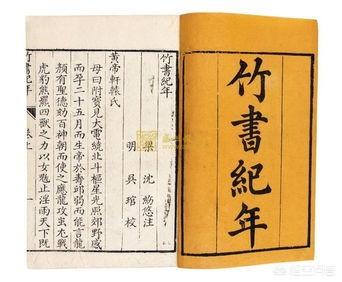 竹書紀年
梁 沈約 附注
明 吳琯 校
黃帝軒轅氏
母曰附寳見大電繞北斗樞星光照郊野感
而孕二十五月而生帝於壽邱弱而能言龍
顏有聖德劾百神朝而使之應龍攻蚩尤戰
虎豹熊羆四獸之力以女魃止淫雨天下既
竹書紀年
卷上
竹書紀年